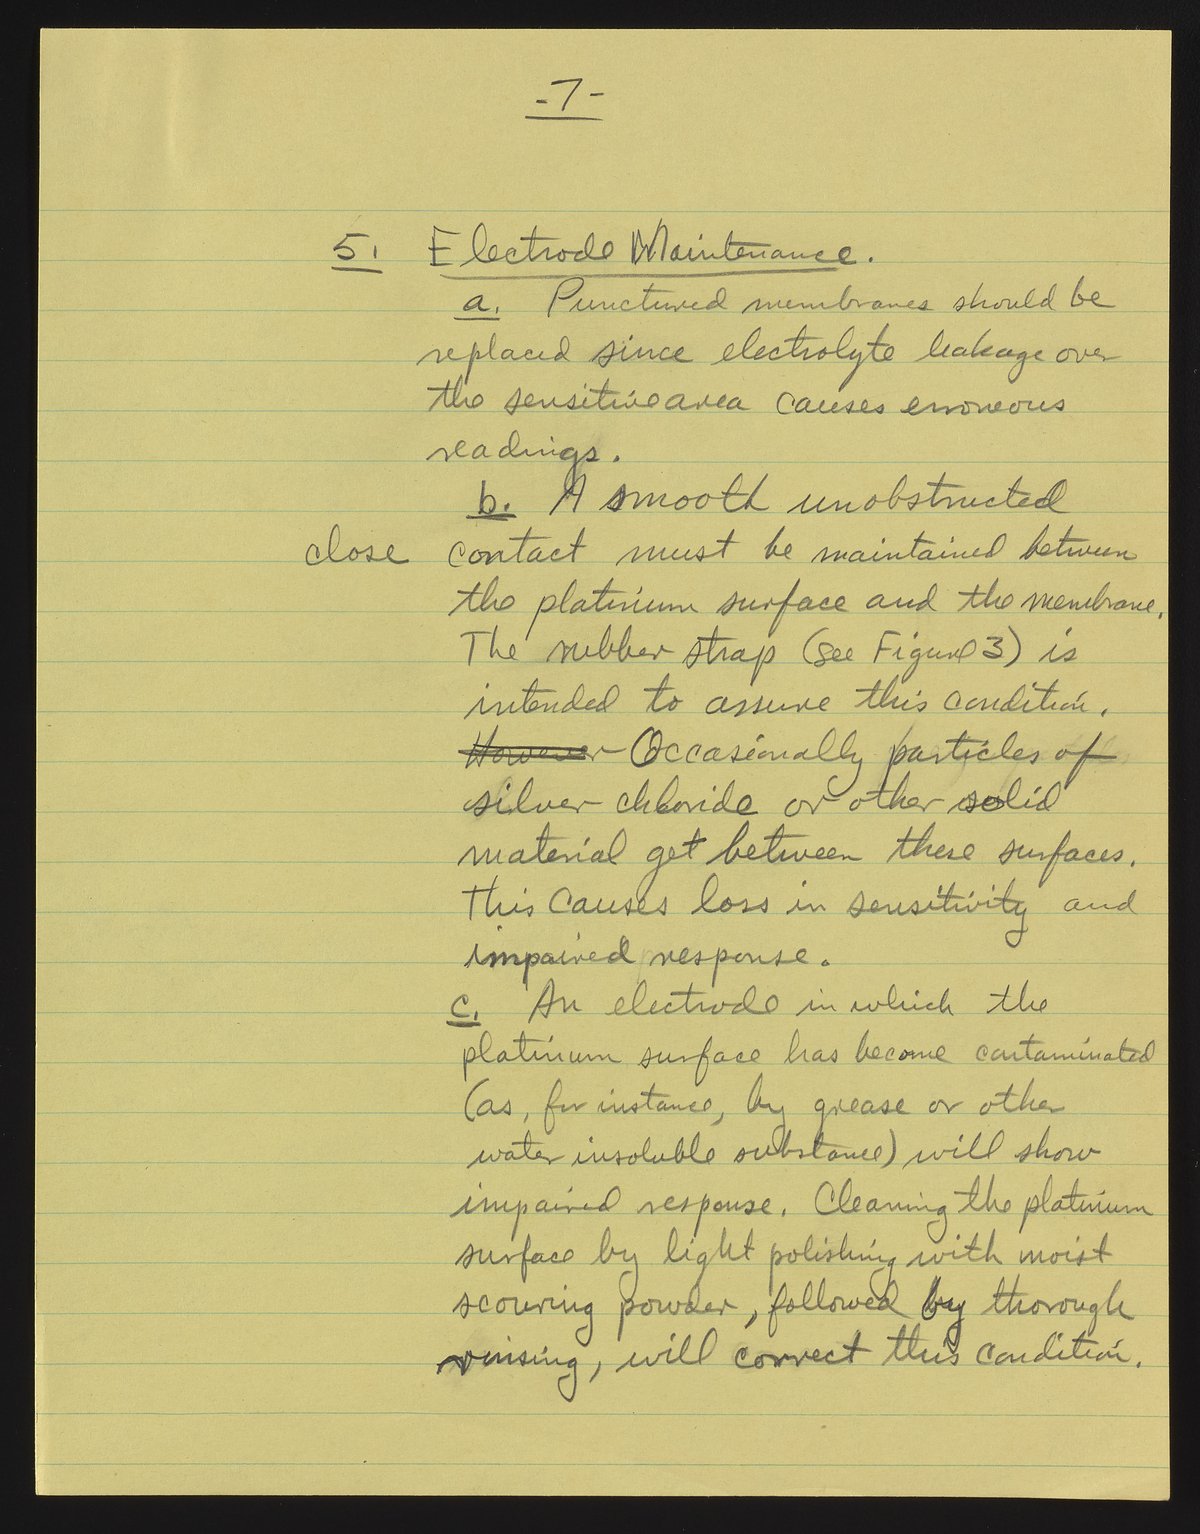 -7-
5. Electrode Maintenance.
a. Punctured membranes should be
replaced since electrolyte leakage over
the sensitive area causes erroneous
readings.
b. A smooth unobstructed
close contact must be maintained between
the platinum surface and the membrane.
The rubber strap (see Figure 3) is
intended to assure this condition.
However Occasionally particles of
silver chloride or other solid
material get between these surfaces.
This causes loss in sensitivity and
impaired response.
c. An electrode in which the
platinum surface has become contaminated
(as, for instance, by grease or other
water insoluble substance) will show
impaired response. Cleaning the platinum
surface by light polishing with moist
scouring powder, followed by thorough
rinsing, will correct this condition.